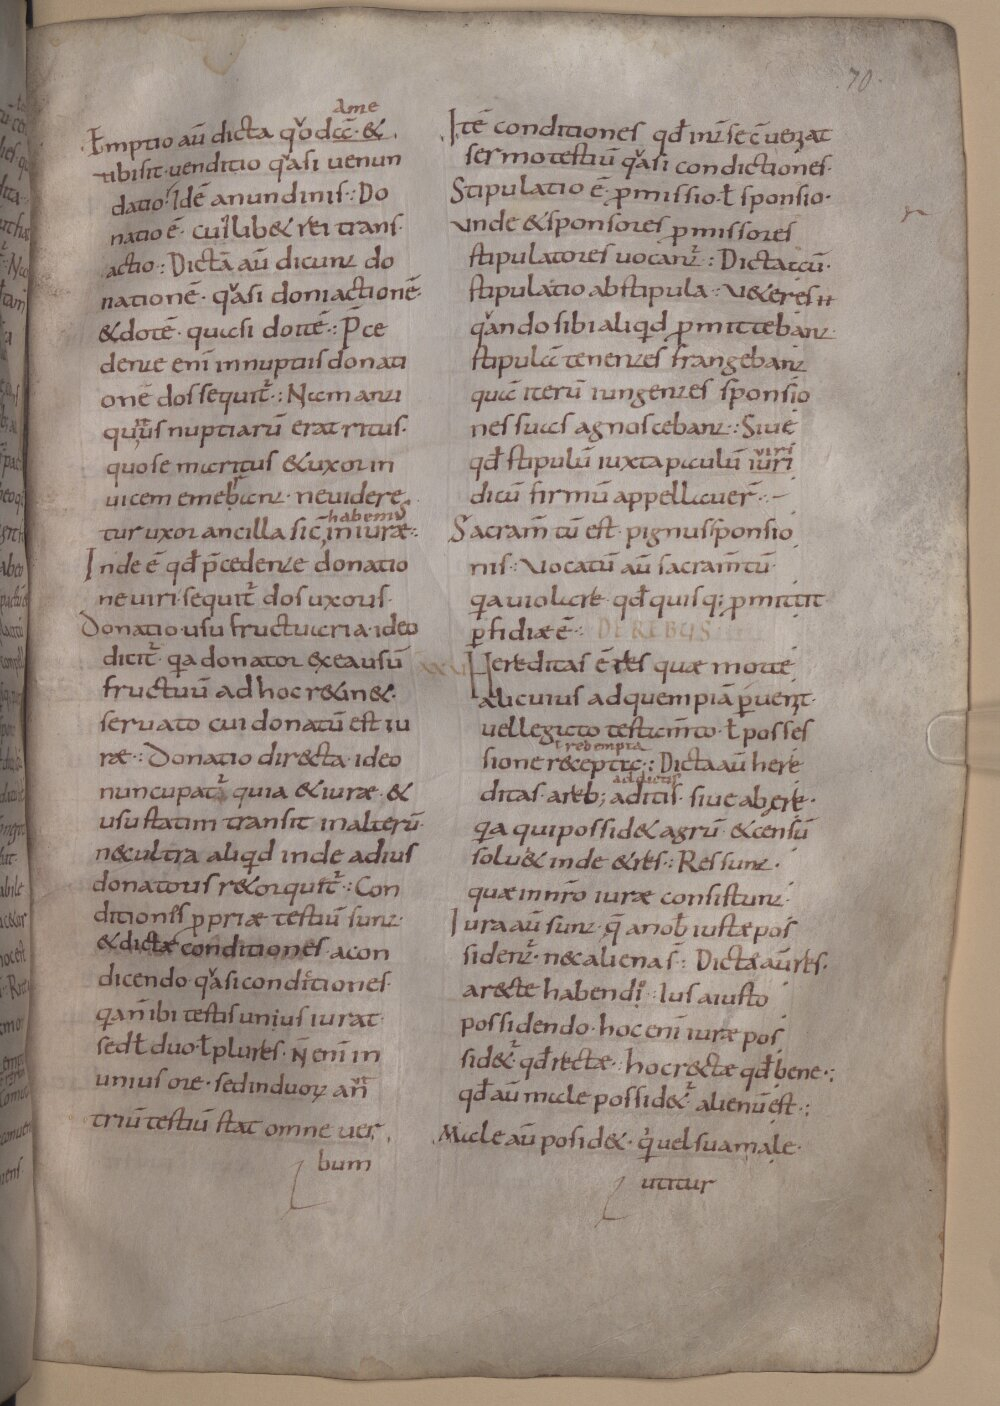 70
Ame
Emptio aū dicta qͮod ac̄ &
tibi sit· venditio qͮasi venun
datio· Idē anundinis·: Do
natio ē· cuiuslib& rei trans
actio·: Dictā aū dicunt do
nationē· qͮasi doniactionē·
& dotē· quasi do itē·: P̄ce
dente enī innuptiis donati
onē dos sequit᷑·: Nam anti
quus nuptiarū erat ritus·
quo se maritus & uxor in
uicem emebant· ne videre
habemus
tur uxor ancilla sic̄ in iuræ·:
Inde ē qđ p̄cedente donatio
ne viri· sequit᷑ dos uxoris·
Donatio· usu fructuaria· ideo
dicit᷑· qa donator ex ea usū
fructuū ad hoc r&in&·
servato cui donatū est iu
ræ·: Donatio directa· ideo
nuncupat᷑· quia & iuræ &
usu statim transit in alterū·
n& ultra aliqid inde ad ius
donatoris r&orquit᷑·: Con
ditiones p̱priæ testiū sunt·
& dictæ conditiones· a con
dicendo· qͮasi condictiones·
qa n̄ ibi testis unius iurat·
sed ł duo· ł plures· n̄ enī in
unius ore· sed in duoꝝ aūt
triū testiū stat omne ver
bum
Itē conditiones qđ int̄ se c̄veniat
sermo testiū qͮasi condictiones·
Stipulatio ē· p̱missio· ł sponsio·
Vnde & sponsores p̱missores
stipulatores vocant᷑·: Dicta aū·
stipulatio ab stipula· V&eres n̄
qͮando sibi aliqid p̱mittebant
stipulā tenentes frangebant
quā iterū iungentes sponsio
nes suas agnoscebant·: Sive
viri
qđ stipulū iuxta paculū iuri
dicū firmū appellaver̄·
Sacram̄tū est· pignus sponsio
nis·: Vocatū aū sacram̄tū·
qa violare· qđ quisq; p̱mittit
p̱fidiæ ē·: DE REBUS
XXV Hereditas ē res quæ morte
alicuius ad quempiā p̱venit·
vel legato testam̄to· ł posses
ł redempta
sione r&epta·: Dicta aū here
ad dictis
ditas· a reb; aditis· sive ab ære·
qa qui possid& agrū & censū
solu& inde & res·: Res sunt·
quæ in nr̄o iuræ consistunt·
Iura aū sunt· q̄ a nob̄ iuste pos
sident᷑· n& aliena s̄·: Dictæ aū res·
a recte habendo· Ius a iusto
possidendo· hoc enī iuræ pos
sid&᷑· qđ rectæ· hoc rectæ qđ bene·:
qđ aū male possid&᷑ alienū est·:
Male aū posid&· q̇ vel sua male·
utitur